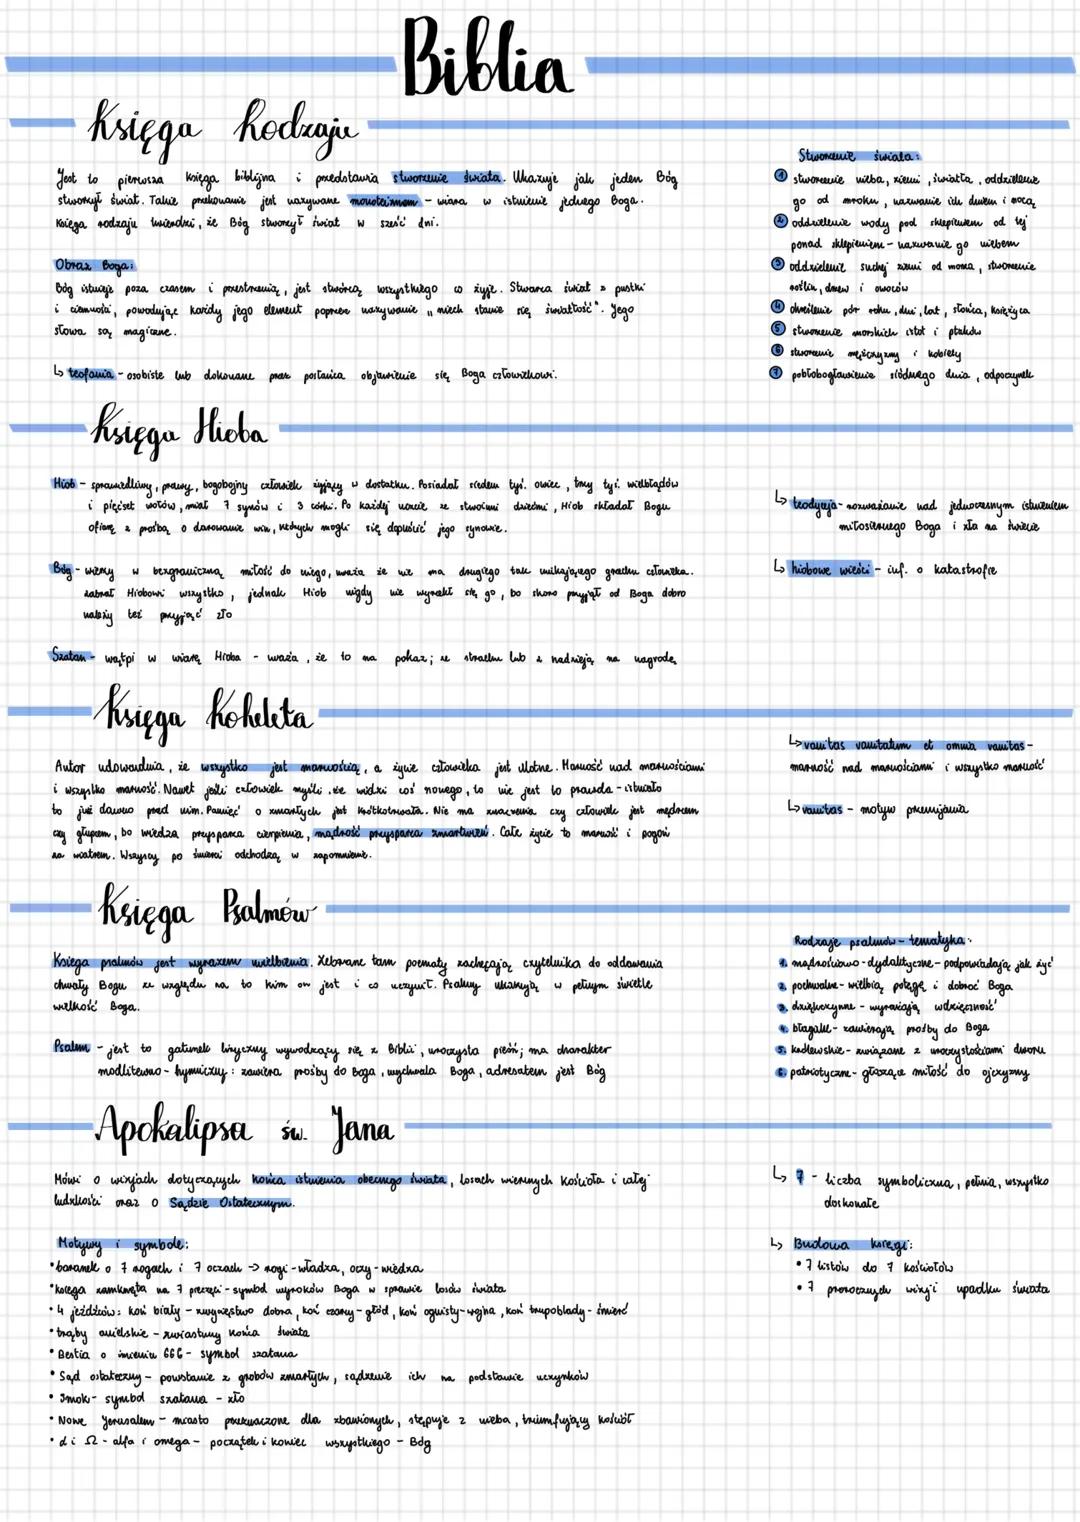 Biblia
Księga Rodzaju
Jest to pierwsza księga biblijna i przedstawia stworzenie świata. Ukazuje jak jeden Bóg
stworzył świat. Takie przekonanie jest nazywane monoteizmem - wiara w istnienie jednego Boga.
Księga rodzaju twierdzi, że Bóg stworzył świat w sześć dni.
Obraz Boga:
Bóg istnieje poza czasem i przestrzenią, jest stwórcą wszystkiego co żyje. Stwarza świat z pustki
i ciemności, powołując każdy jego element poprzez nazywanie „niech stanie się światłość". Jego
słowa są magiczne.
↳ teofania - osobiste lub dokonane przez posłańca objawienie się Boga człowiekowi.
Stworzenie świata:
1 stworzenie nieba, ziemi, światła, oddzielenie
go od mroku, nazwanie ich dniem i nocą
2 oddzielenie wody pod sklepieniem od tej
ponad sklepieniem - nazwanie go niebem
3 oddzielenie suchej ziemi od morza, stworzenie
roślin, drzew i owoców
4 określenie pór roku, dni, lat, słońca, księżyca
5 stworzenie morskich istot i ptaków
6 stworzenie mężczyzny i kobiety
7 pobłogosławienie siódmego dnia, odpoczynek
Księga Hioba
Hiob - sprawiedliwy, prawy, bogobojny człowiek żyjący w dostatku. Posiadał siedem tyś. owiec, trzy tyś. wielbłądów
i pięćset wołów, miał 7 synów i 3 córki. Po każdej uczcie ze swoimi dziećmi, Hiob składał Bogu
ofiarę z prośbą o darowanie win, których mogli się dopuścić jego synowie.
Bóg - wierzy w bezgraniczną miłość do niego, uważa że nie ma drugiego tak unikającego grzechu człowieka.
zabrał Hiobowi wszystko, jednak Hiob nigdy nie wyrzekł się go, bo skoro przyjął od Boga dobro
należy też przyjąć zło
Szatan - wątpi w wiarę Hioba - uważa, że to na pokaz; ze strachu lub z nadzieją na nagrodę
↳ teodyceja - rozważanie nad jednoczesnym istnieniem
miłosiernego Boga i zła na świecie
↳ hiobowe wieści - inf. o katastrofie
Księga Koheleta
Autor udowadnia, że wszystko jest marnością, a życie człowieka jest ulotne. Marność nad marnościami
i wszystko marność. Nawet jeśli człowiek myśli, że widzi coś nowego, to nie jest to prawda - istniało
to już dawno przed nim. Pamięć o zmarłych jest krótkotrwała. Nie ma znaczenia czy człowiek jest mędrcem
czy głupcem, bo wiedza przysparza cierpienia, mądrość przysparza zmartwień. Całe życie to marność i pogoń
za wiatrem. Wszyscy po śmierci odchodzą w zapomnienie.
↳ vanitas vanitatum et omnia vanitas -
marność nad marnościami i wszystko marność
↳ vanitas - motyw przemijania
Księga Psalmów
Księga psalmów jest wyrazem uwielbienia. Zebrane tam poematy zachęcają czytelnika do oddawania
chwały Bogu ze względu na to kim on jest i co uczynił. Psalmy ukazują w pełnym świetle
wielkość Boga.
Psalm - jest to gatunek liryczny wywodzący się z Biblii, uroczysta pieśń; ma charakter
modlitewno - hymniczny: zawiera prośby do Boga, wychwala Boga, adresatem jest Bóg
Rodzaje psalmów - tematyka:
1. mądrościowo - dydaktyczne - podpowiadają jak żyć
2. pochwalne - wielbią potęgę i dobroć Boga
3. dziękczynne - wyrażają wdzięczność
4. błagalne - zawierają prośby do Boga
5. królewskie - związane z uroczystościami dworu
6. patriotyczne - głoszące miłość do ojczyzny
Apokalipsa św. Jana
Mówi o wizjach dotyczących końca istnienia obecnego świata, losach wiernych Kościoła i całej
ludzkości oraz o Sądzie Ostatecznym.
Motywy i symbole:
• baranek o 7 rogach i 7 oczach → rogi - władza, oczy - wiedza
• księga zamknięta na 7 pieczęci - symbol wyroków Boga w sprawie losów świata
• 4 jeźdźców: koń biały - zwycięstwo dobra, koń czarny - głód, koń ognisty - wojna, koń trupoblady - śmierć
• trąby anielskie - zwiastuny końca świata
• Bestia o imieniu 666 - symbol szatana
• Sąd ostateczny - powstanie z grobów zmarłych, sądzenie ich na podstawie uczynków
• Smok - symbol szatana - zło
• Nowe Jerusalem - miasto przeznaczone dla zbawionych, stępuje z nieba, triumfujący kościół
• α i Ω - alfa i omega - początek i koniec wszystkiego - Bóg
↳ 7 - liczba symboliczna, pełnia, wszystko
doskonałe
↳ Budowa księgi:
• 7 listów do 7 kościołów
• 7 proroczych wizji upadku świata